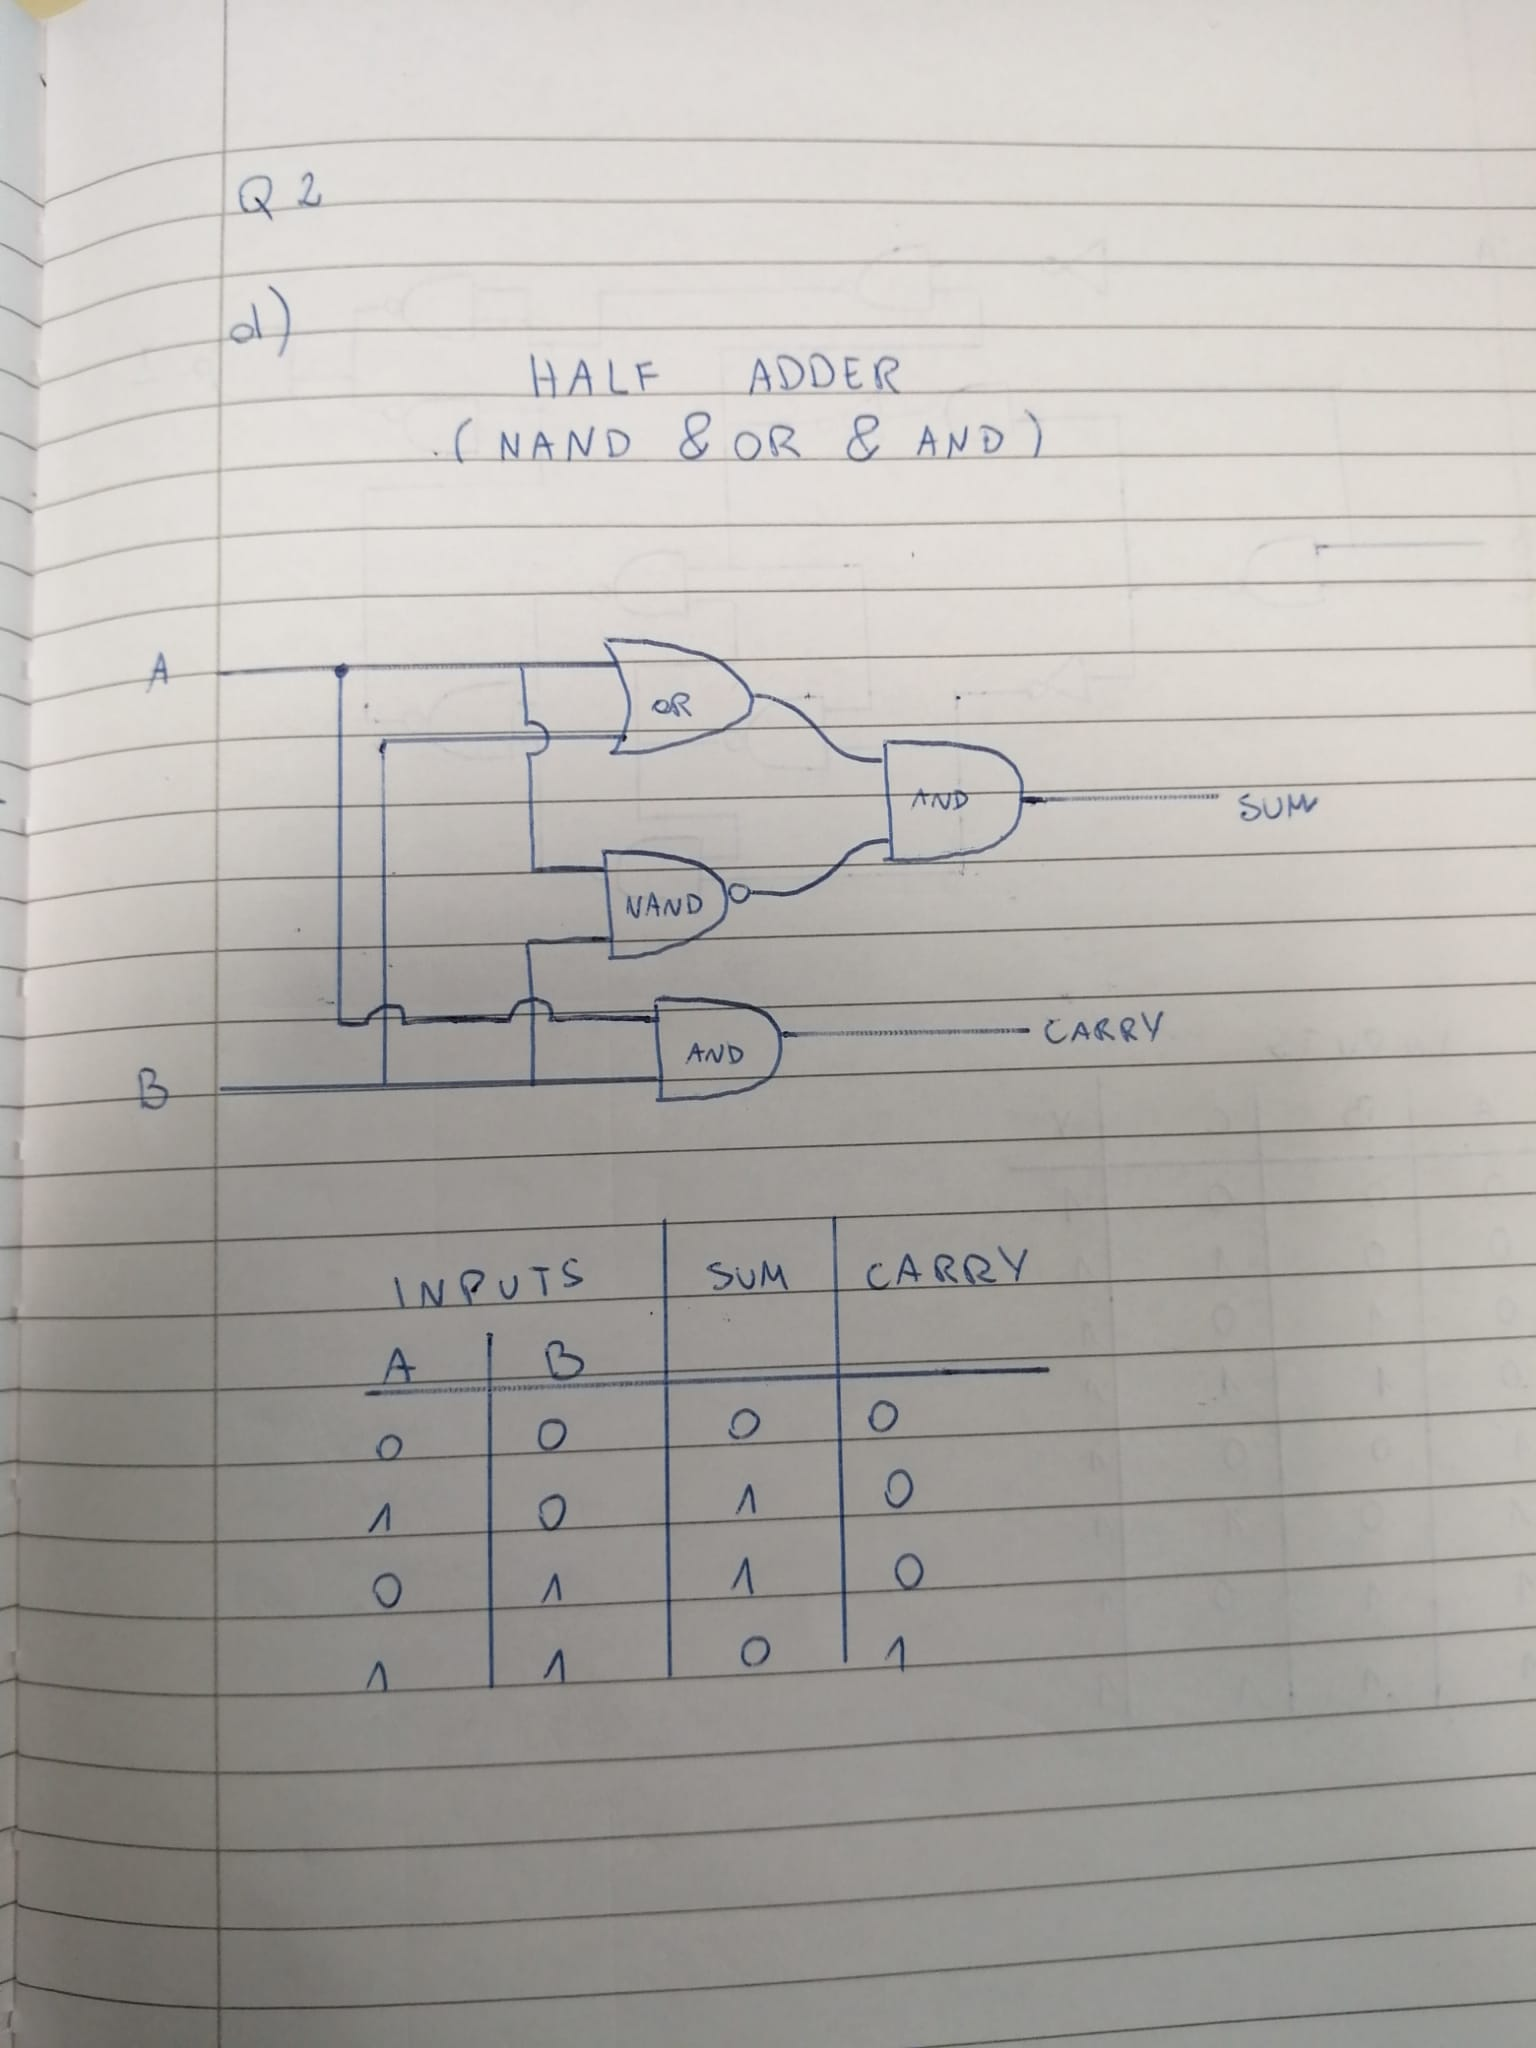 Q 2
d)
HALF ADDER
(NAND & OR & AND)
A
OR
AND
SUM
NAND
AND
CARRY
B
INPUTS SUM CARRY
A B
0 0 0 0
1 0 1 0
0 1 1 0
1 1 0 1